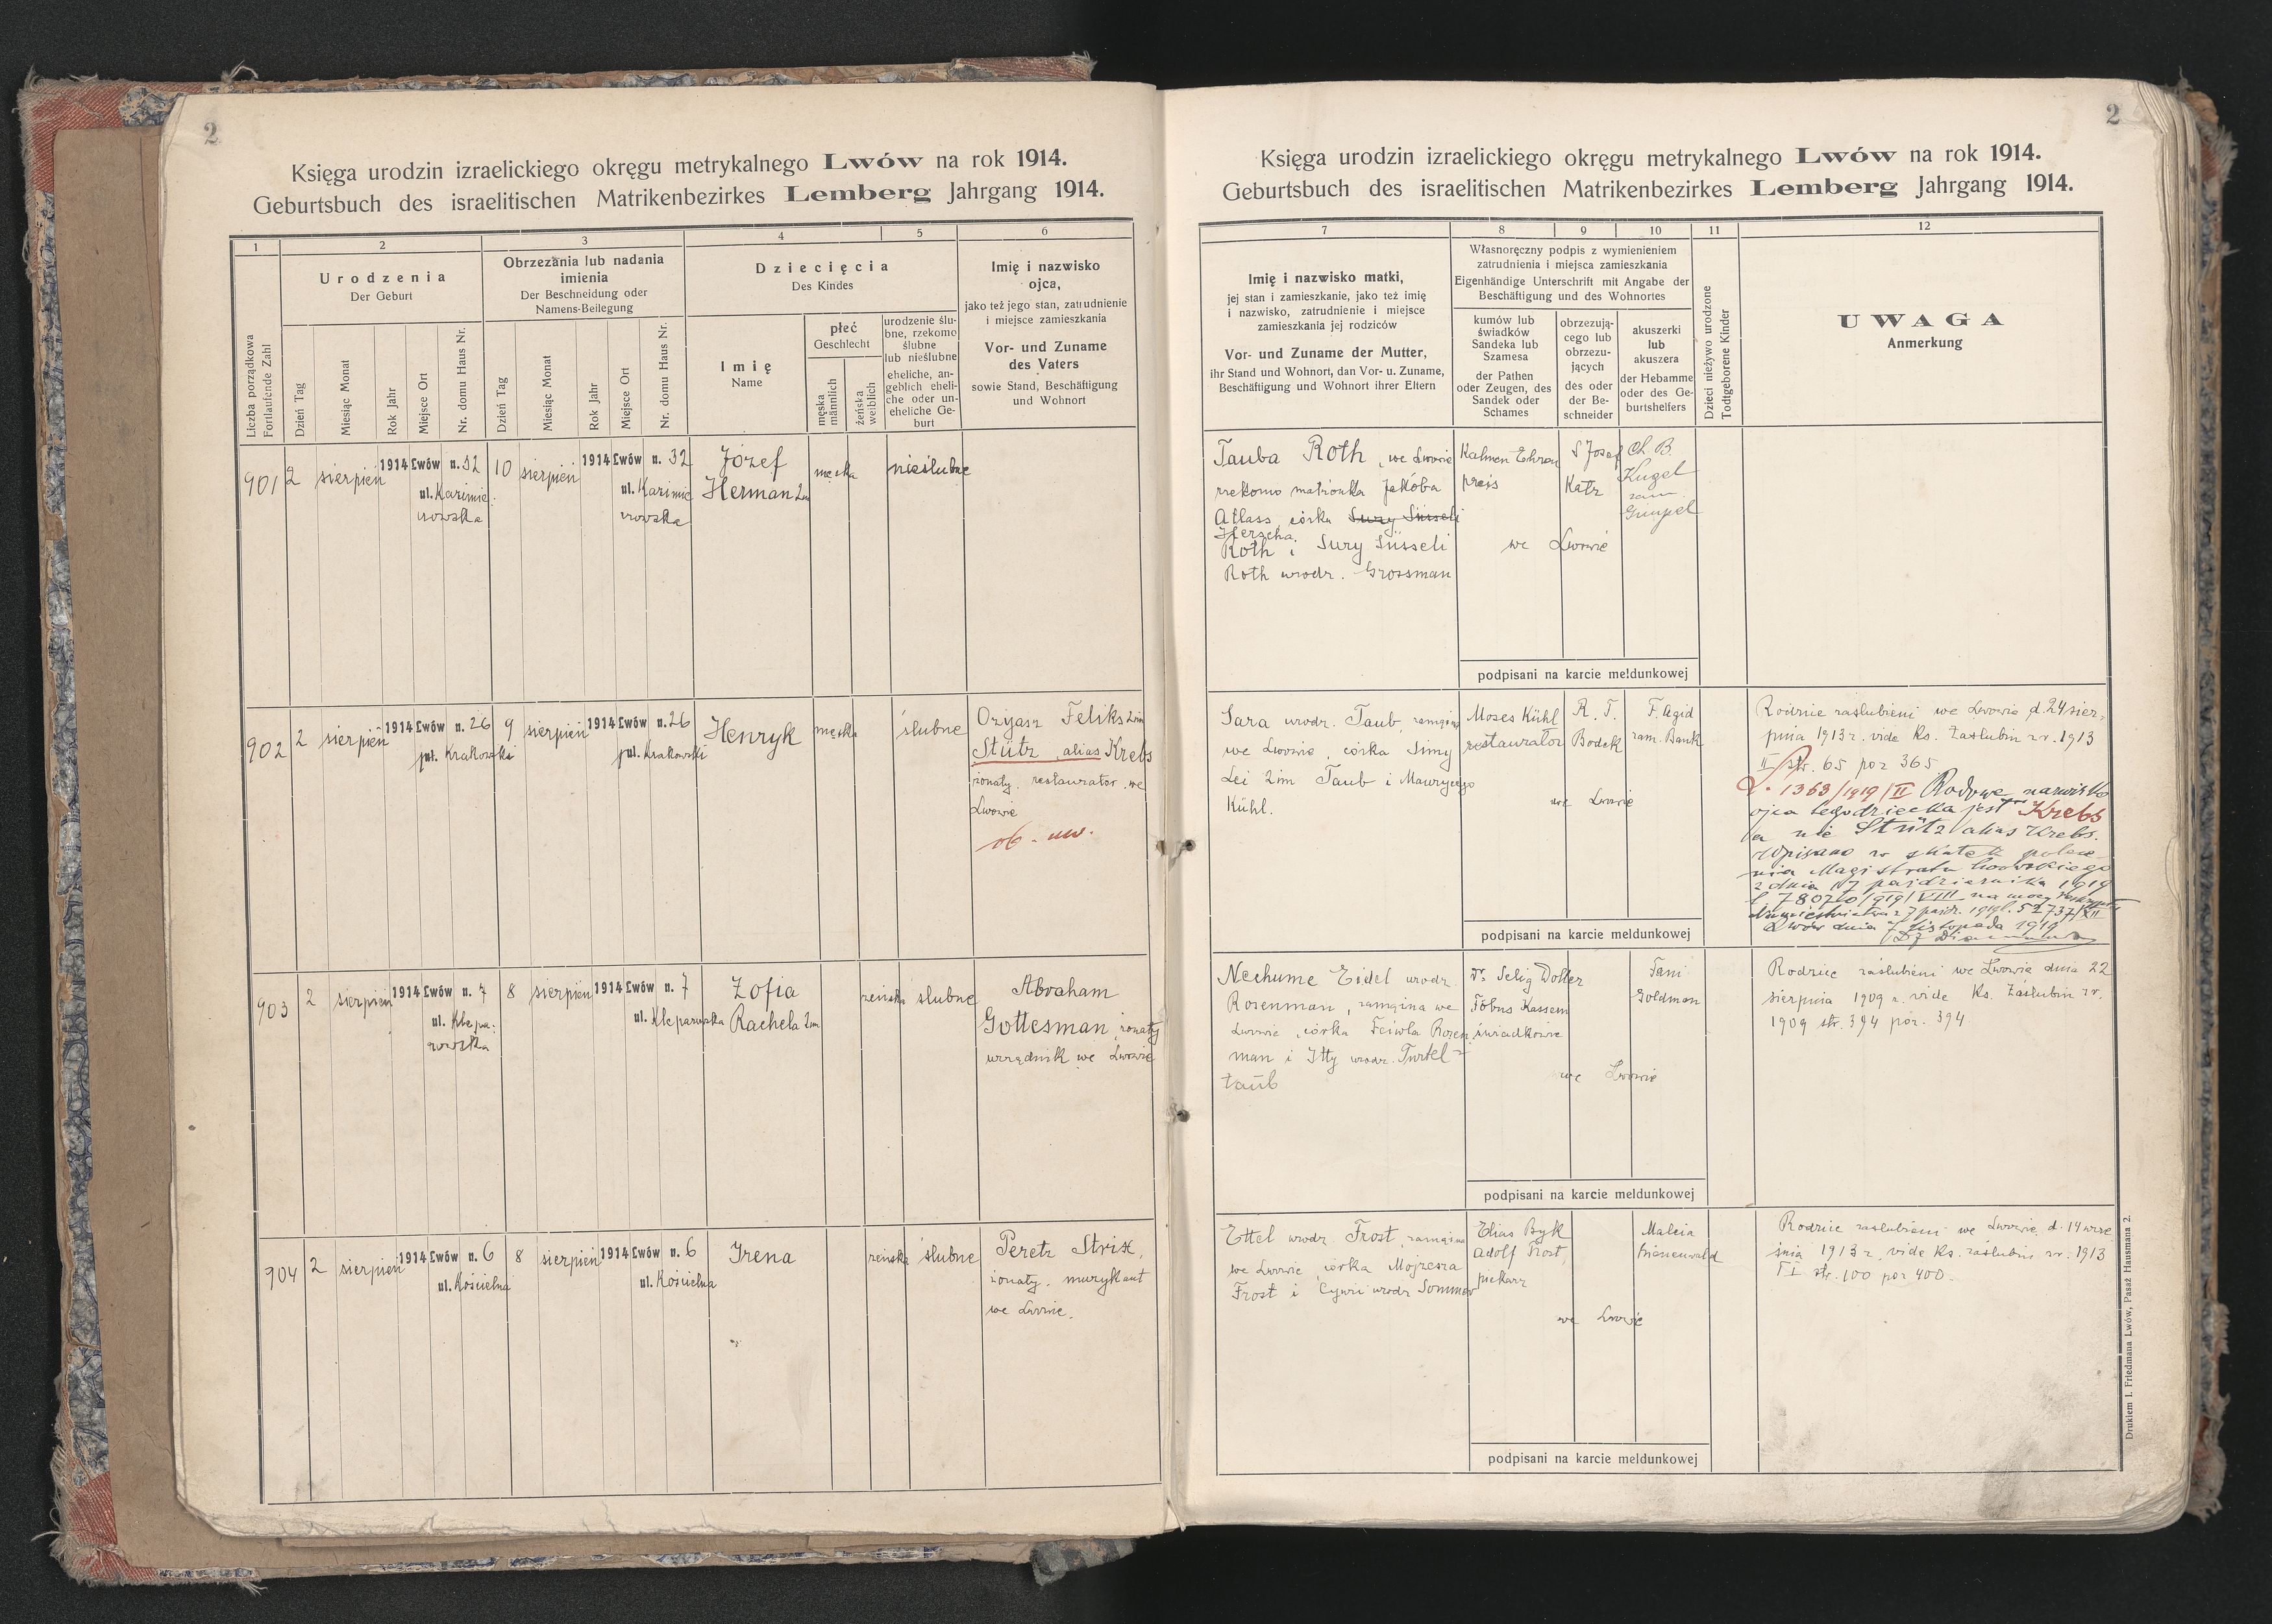 2
Księga urodzin izraelickiego okręgu metrykalnego Lwów na rok 1914.
Geburtsbuch des israelitischen Matrikenbezirkes Lemberg Jahrgang 1914.
1 2 3 4 5 6
Liczba porządkowa
Fortlaufende Zahl
Urodzenia
Der Geburt
Dzień Tag
Miesiąc Monat
Rok Jahr
Miejsce Ort
Nr. domu Haus Nr.
Obrzezania lub nadania
imienia
Der Beschneidung oder
Namens-Beilegung
Dzień Tag
Miesiąc Monat
Rok Jahr
Miejsce Ort
Nr. domu Haus Nr.
Dziecięcia
Des Kindes
Imię
Name
płeć
Geschlecht
męska
männlich
żeńska
weiblich
urodzenie ślu-
bne, rzekomo
ślubne
lub nieślubne
eheliche, an-
geblich eheli-
che oder un-
eheliche Ge-
burt
Imię i nazwisko
ojca,
jako też jego stan, zatrudnienie
i miejsce zamieszkania
Vor- und Zuname
des Vaters
sowie Stand, Beschäftigung
und Wohnort
901 2 sierpień 1914 Lwów n. 32 10 sierpień 1914 Lwów n. 32 Józef męska nieślubne
ul. Kazimie ul. Kazimie Herman 2im
rowska rowska
902 2 sierpień 1914 Lwów n. 26 9 sierpień 1914 Lwów n. 26 Henryk męska ślubne Ozyasz Feliks 2im
pl. Krakowski pl. Krakowski Stütz alias Krebs
żonaty, restaurator we
Lwowie
ob. uw.
903 2 sierpień 1914 Lwów n. 7 8 sierpień 1914 Lwów n. 7 Zofia żeńska ślubne Abraham
ul. Klepa- ul. Kleparowska Rachela 2im Gottesman, żonaty
rowska urzędnik we Lwowie
904 2 sierpień 1914 Lwów n. 6 8 sierpień 1914 Lwów n. 6 Irena żeńska ślubne Peretz Strix,
ul. Kościelna ul. Kościelna żonaty, muzykant
we Lwowie.
2
Księga urodzin izraelickiego okręgu metrykalnego Lwów na rok 1914.
Geburtsbuch des israelitischen Matrikenbezirkes Lemberg Jahrgang 1914.
7 8 9 10 11 12
Imię i nazwisko matki,
jej stan i zamieszkanie, jako też imię
i nazwisko, zatrudnienie i miejsce
zamieszkania jej rodziców
Vor- und Zuname der Mutter,
ihr Stand und Wohnort, dan Vor- u. Zuname,
Beschäftigung und Wohnort ihrer Eltern
Własnoręczny podpis z wymienieniem
zatrudnienia i miejsca zamieszkania
Eigenhändige Unterschrift mit Angabe der
Beschäftigung und des Wohnortes
kumów lub
świadków
Sandeka lub
Szamesa
der Pathen
oder Zeugen, des
Sandek oder
Schames
obrzezują-
cego lub
obrzezu-
jących
des oder
der Be-
schneider
akuszerki
lub
akuszera
der Hebamme
oder des Ge-
burtshelfers
Dzieci nieżywo urodzone
Todtgeborene Kinder
UWAGA
Anmerkung
Tauba Roth, we Lwowie
rzekomo małżonka Jakóba
Atlass, córka Sury Süsseli
Herscha
Roth i Sury Süsseli
Roth urodz. Grossman
Kalmen Ehren
preis
S Józef
Katz
Ch. B.
Kugel
zam
Gimpel
we Lwowie
podpisani na karcie meldunkowej
Sara urodz. Taub, zamężna
we Lwowie, córka Simy
Lei 2im Taub i Maurycego
Kühl.
Moses Kühl
restaurator
R. T.
Bodek
F. Agid
zam. Bank
we Lwowie
podpisani na karcie meldunkowej
Rodzice zaślubieni we Lwowie d. 24 sier-
pnia 1913 r. vide Ks. Zaślubin z r. 1913
II str. 65 poz 365
L. 1363/1919/II Rodowe nazwisko
ojca tego dziecka jest Krebs
a nie Stütz alias Krebs.
Wpisano w skutek polece-
nia Magistratu lwowskiego
z dnia 17 października 1919
l 78070/919/VIII na mocy reskryptu
Namiestnictwa z 7 paźdz. 1919 l. 52737/XII
Lwów dnia 7 listopada 1919
Nechume Eidel urodz.
Rosenman, zamężna we
Lwowie, córka Feiwla Rosen
man i Itty urodz. Turtel-
taub
Dr. Selig Dolfer
Föbus Kassem
świadkowie
Fani
Goldman
we Lwowie
podpisani na karcie meldunkowej
Rodzice zaślubieni we Lwowie dnia 22
sierpnia 1909 r. vide Ks. Zaślubin z r.
1909 str. 394 poz. 394
Ettel urodz. Frost, zamężna
we Lwowie, córka Mojżesza
Frost i Cywii urodz Sommer
Elias Byk
Adolf Frost,
piekarz
Malcia
Grünenwald
we Lwowie
podpisani na karcie meldunkowej
Rodzice zaślubieni we Lwowie, d. 14 wrze
śnia 1913 r. vide Ks. zaślubin z r. 1913
II str. 100 poz 400.
Drukiem I. Friedmana Lwów, Pasaż Hausmana 2.